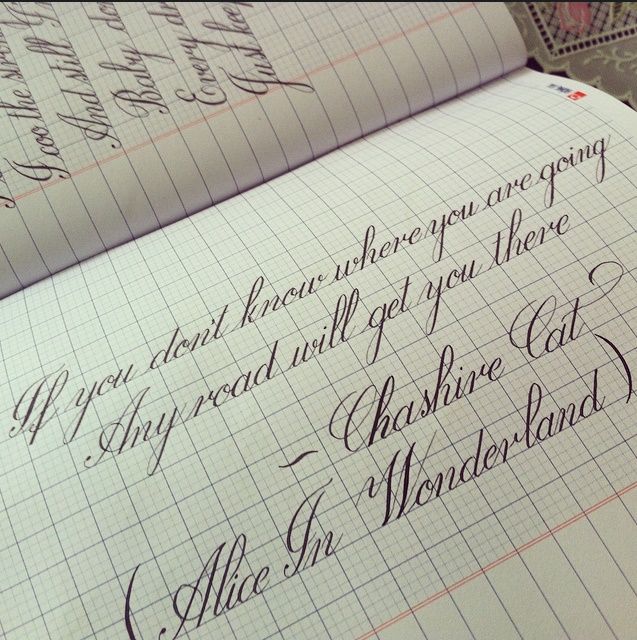 I too the
And still
Baby
Every
Just
If you don't know where you are going
Any road will get you there
~ Chashire Cat
(Alice In Wonderland)